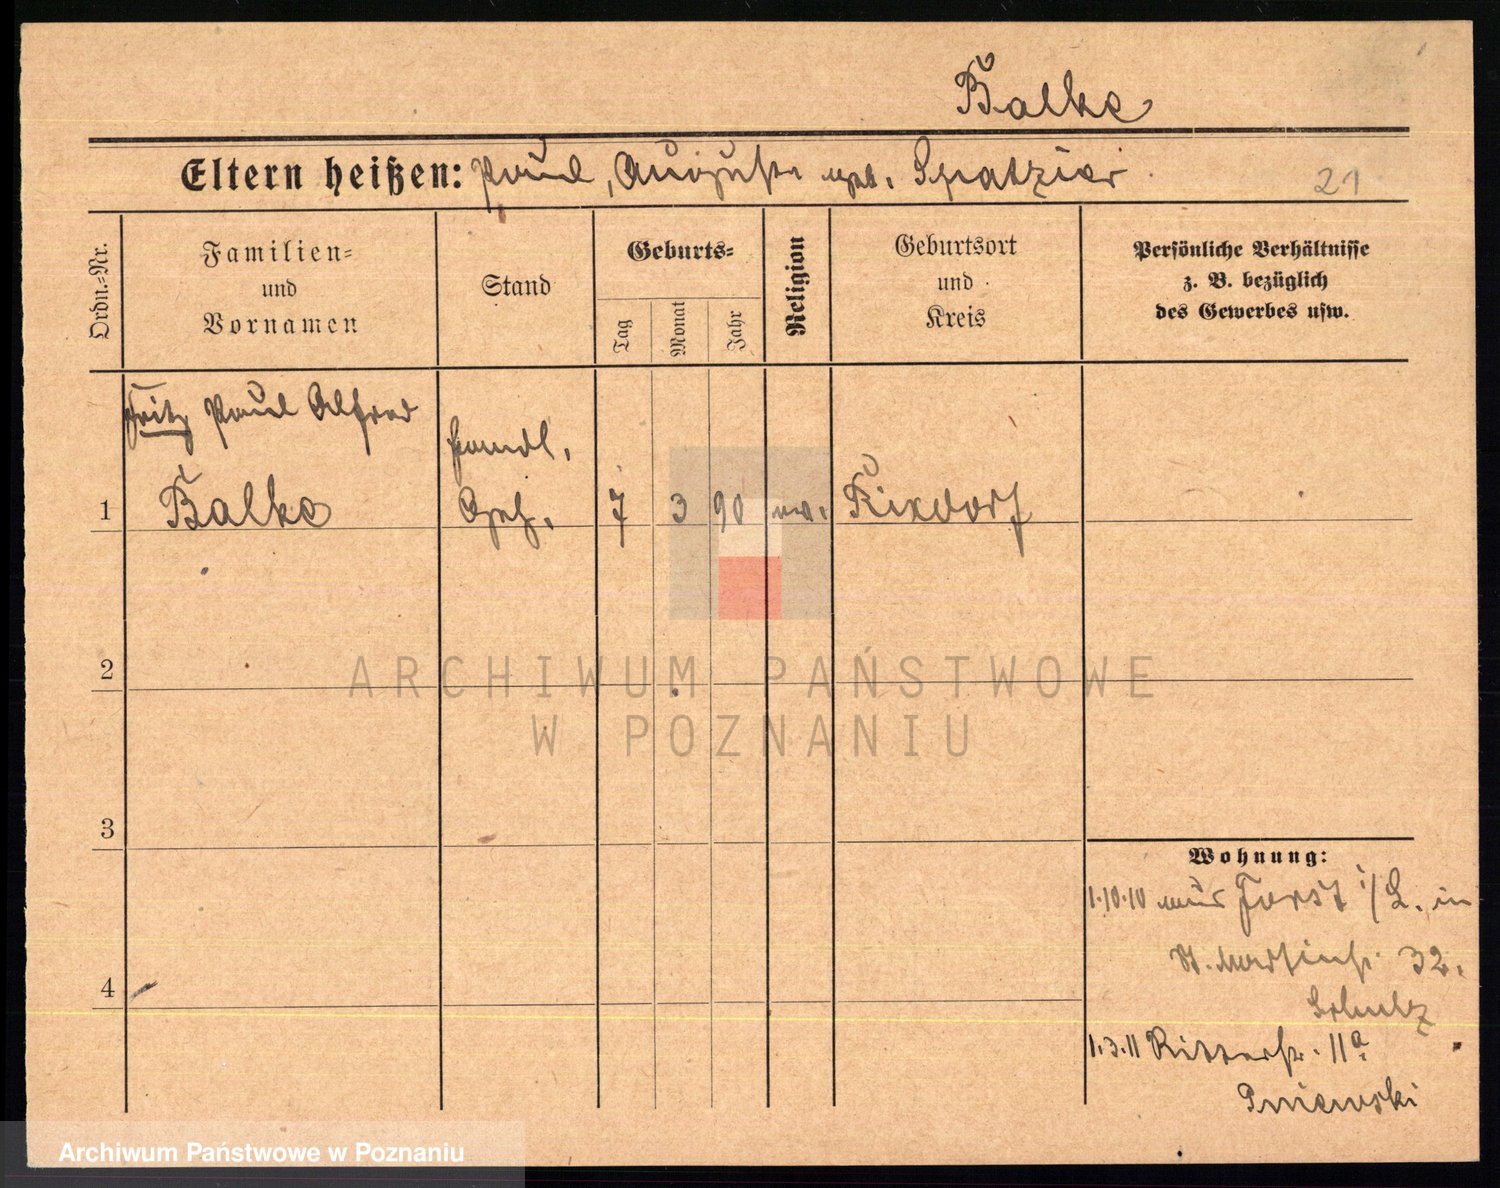 Balke
Eltern heißen: Paul, Auguste geb. Spatzier
21
Ordn.-Nr.
Familien-
und
Vornamen
Stand
Geburts-
Tag
Monat
Jahr
Religion
Geburtsort
und
Kreis
Persönliche Verhältnisse
z. B. bezüglich
des Gewerbes usw.
Fritz Paul Alfred
Handl.
1 Balke Geh. 7 3 90 ev. Rixdorf
2
3
4
Wohnung:
1.10.10 aus Forst i/L. in
St. Martinstr. 32.
Schulz
1.3.11 Ritterstr. 11a
Pniewski
ARCHIWUM PAŃSTWOWE
W POZNANIU
Archiwum Państwowe w Poznaniu